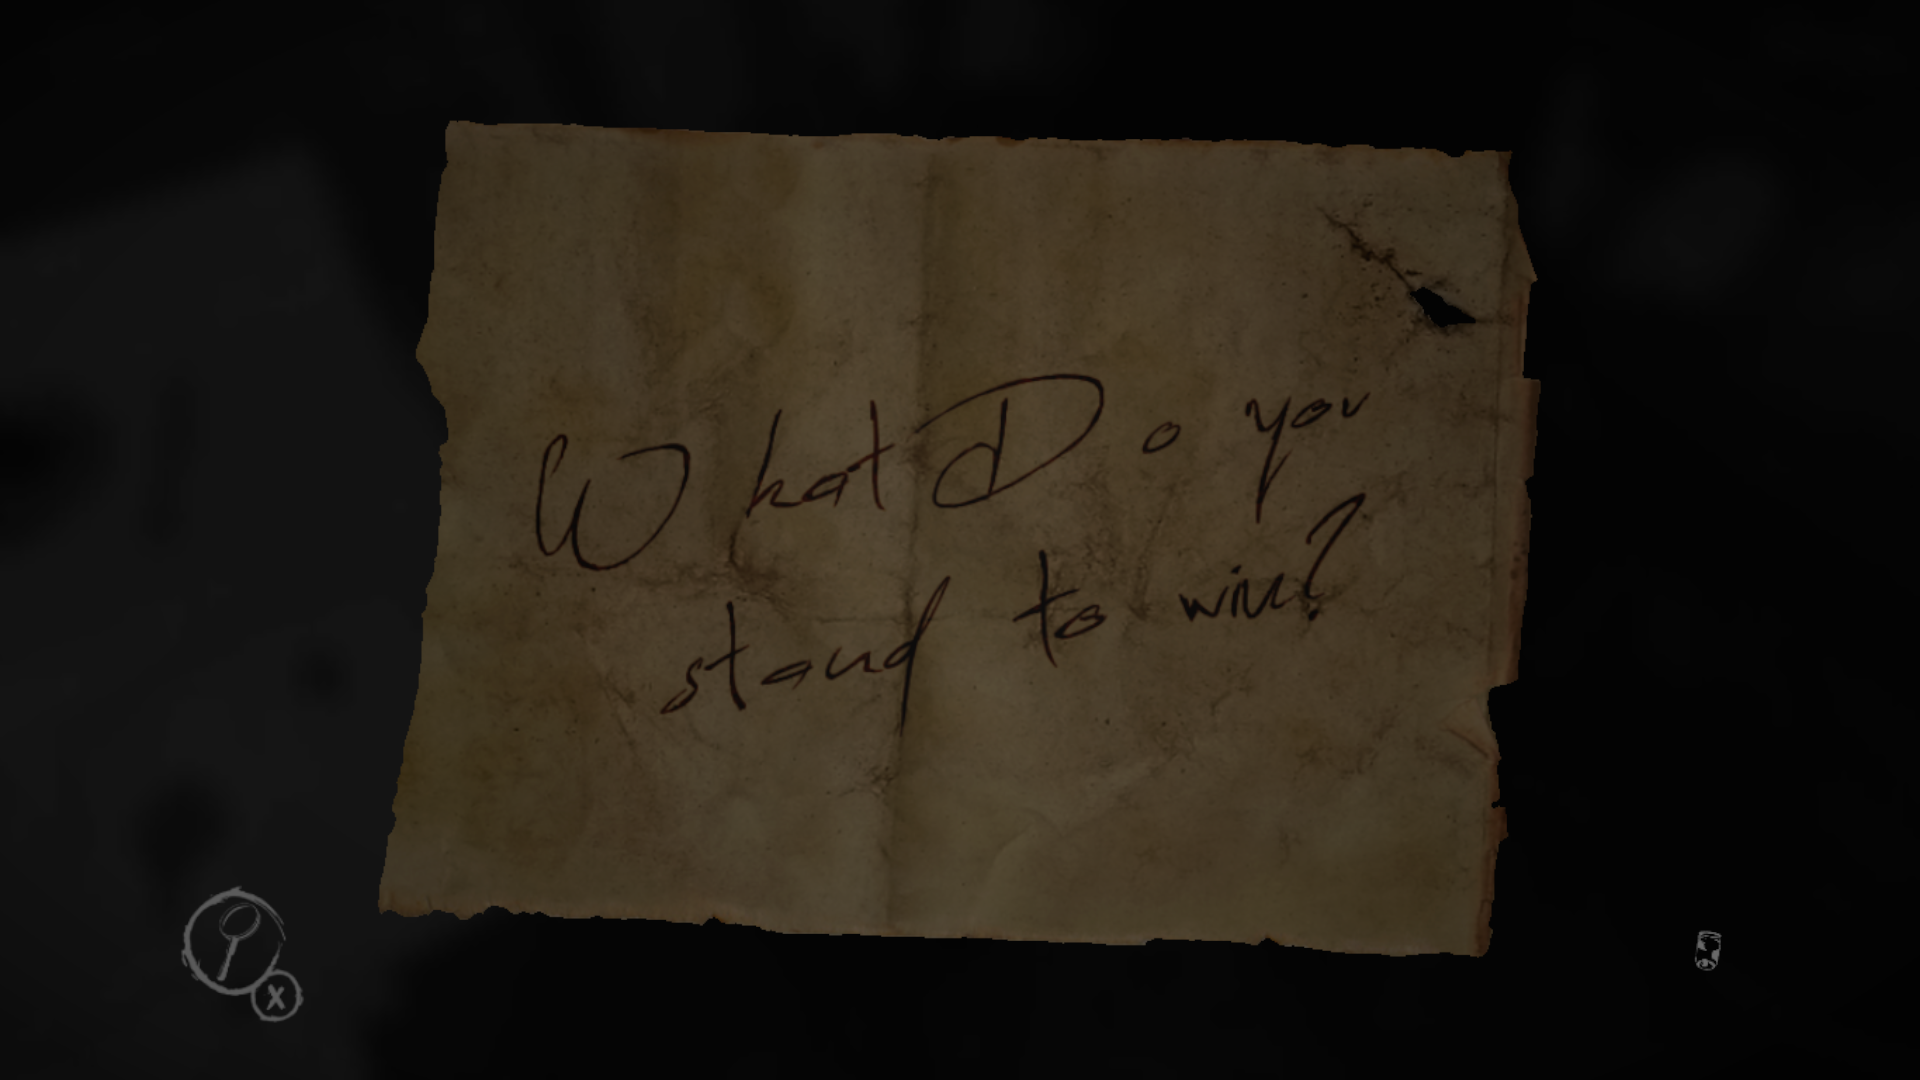 What Do you
stand to win?
X